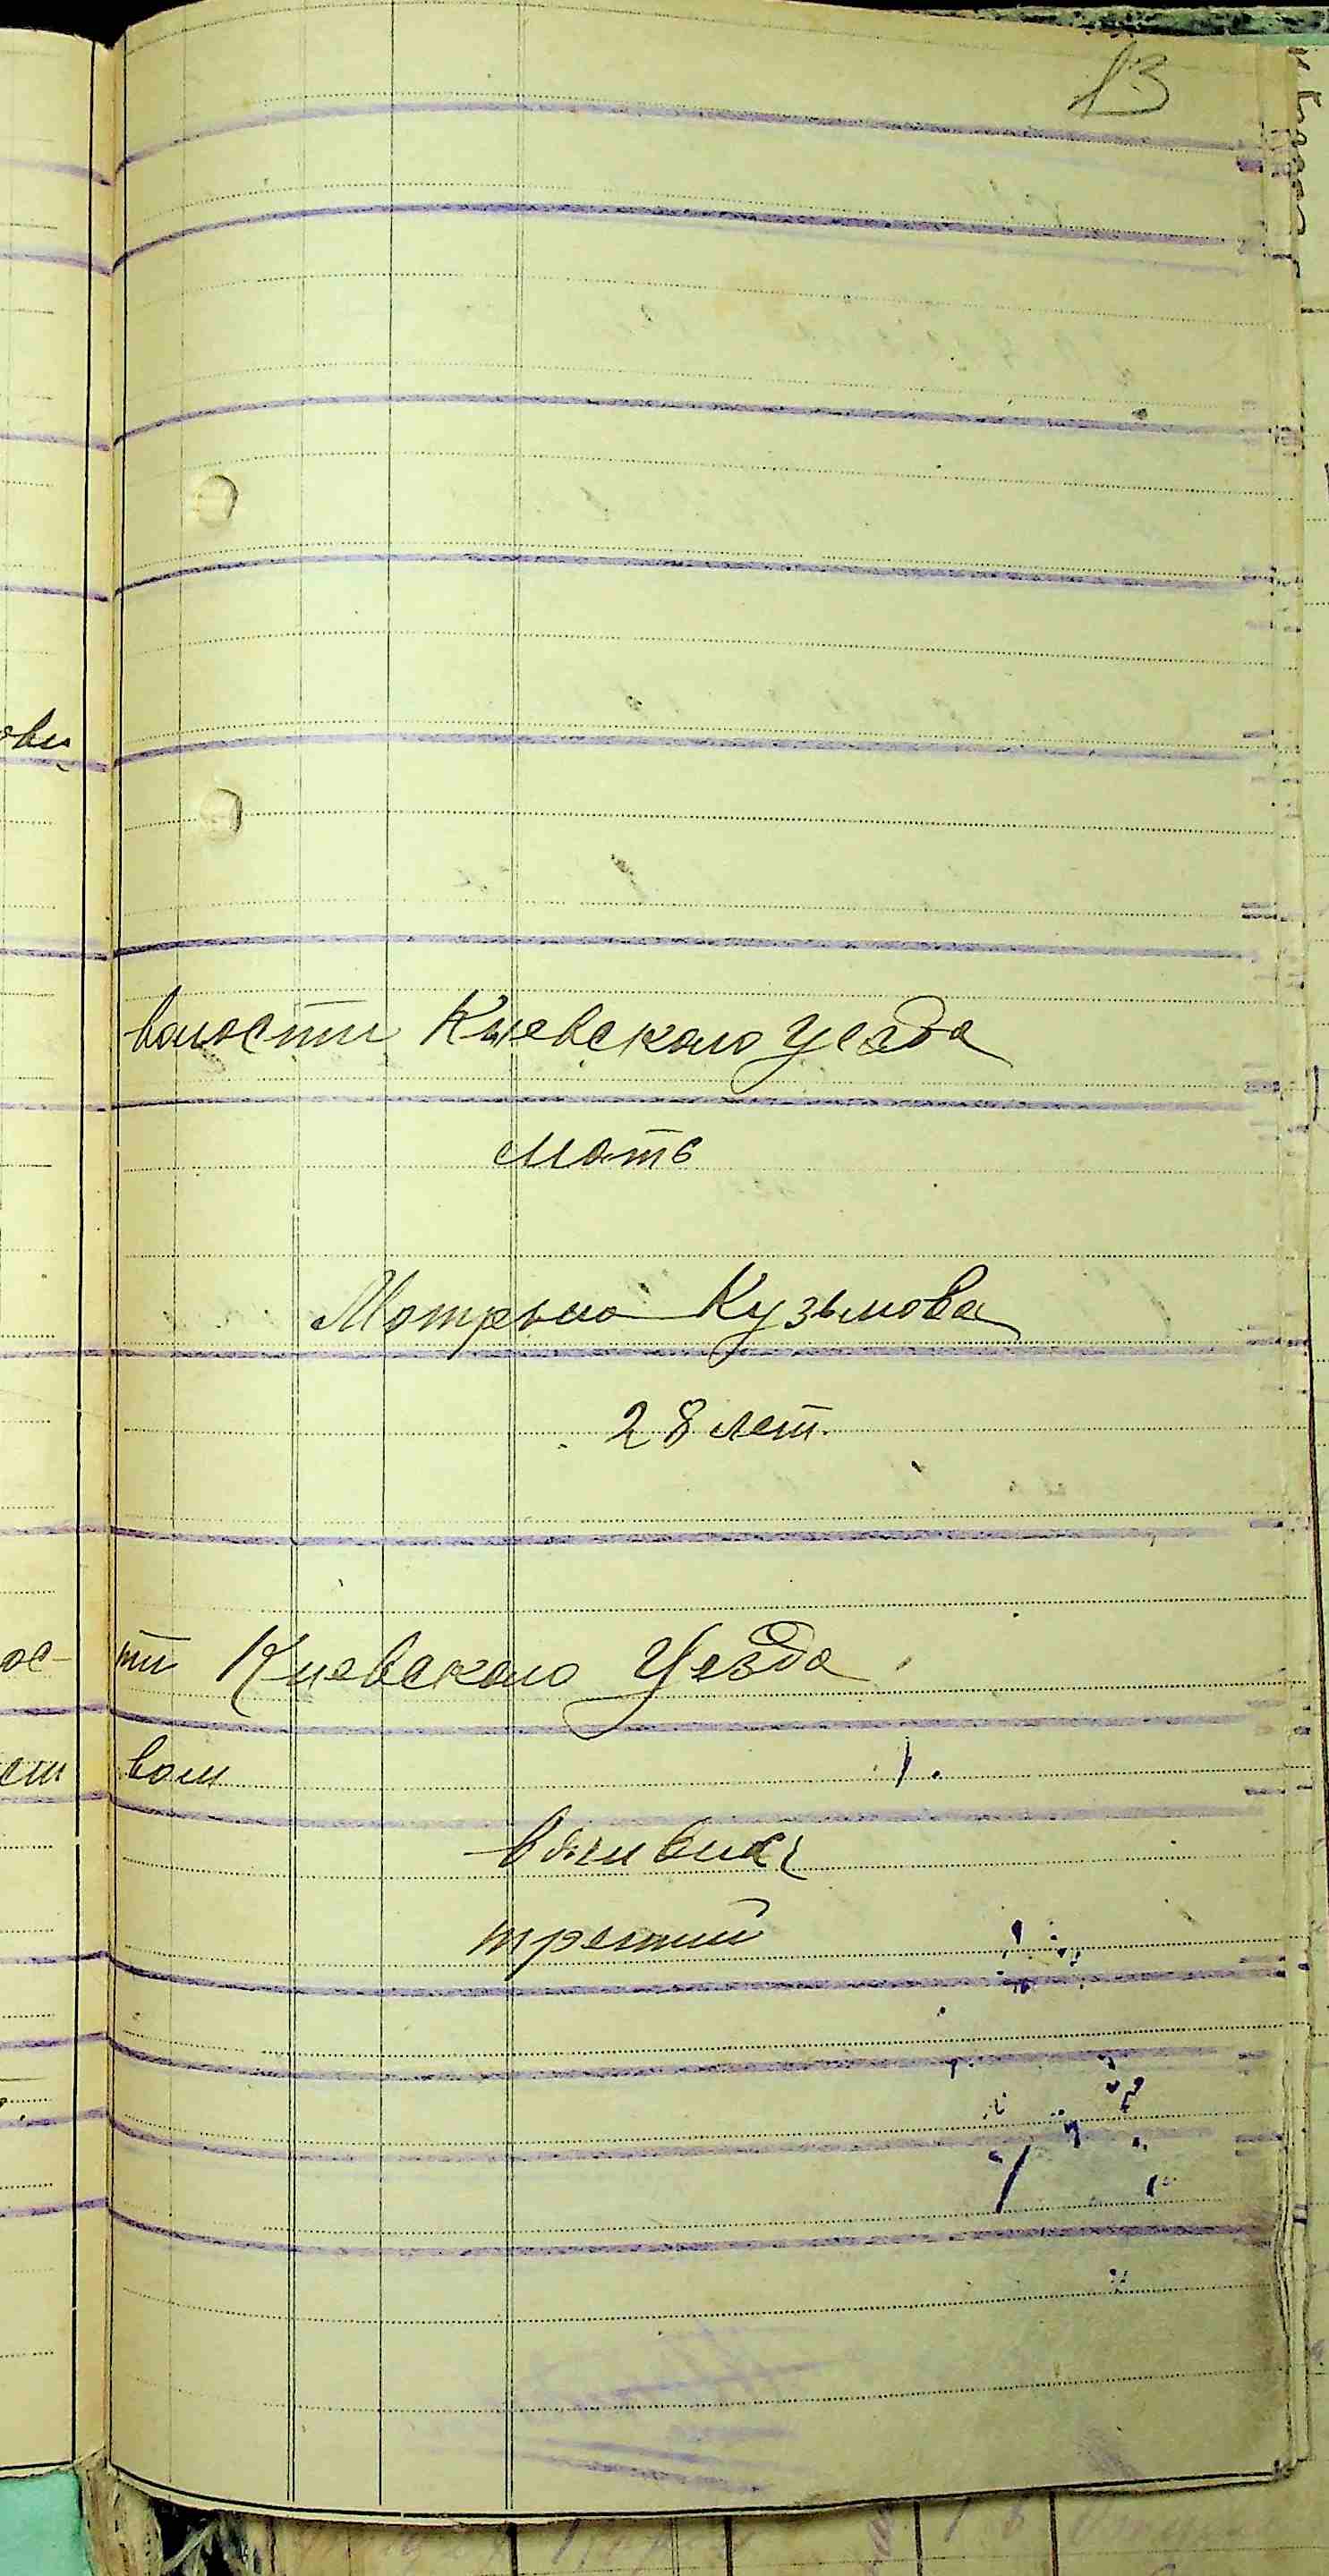 13
волости Киевского уезда
мать
Мотрона Кузьмова
28 лет.
ос- ти Киевского Уезда
вом
третий